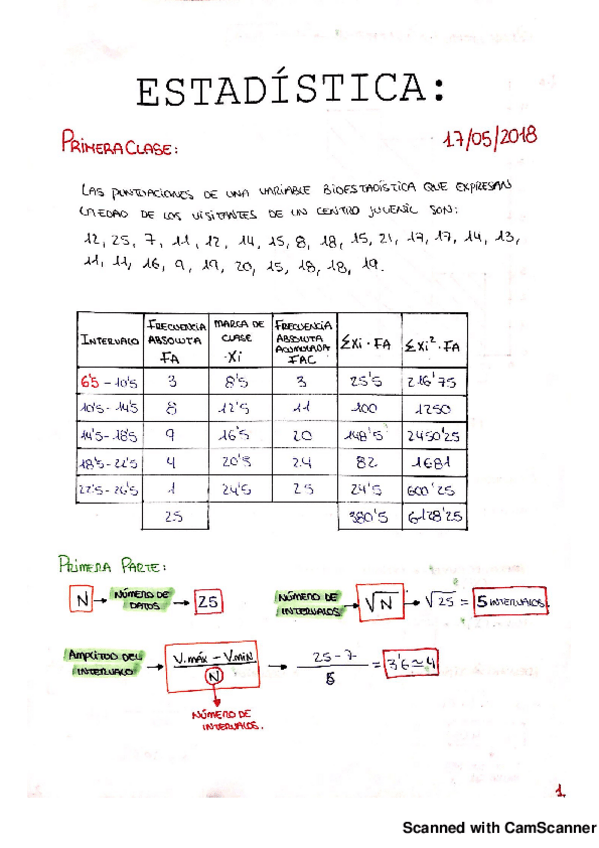 ESTADÍSTICA:
PRIMERA CLASE:
17/05/2018
LAS PUNTUACIONES DE UNA VARIABLE BIOESTADÍSTICA QUE EXPRESAN
LA EDAD DE LOS VISITANTES DE UN CENTRO JUVENIL SON:
12, 25, 7, 11, 12, 14, 15, 8, 18, 15, 21, 17, 17, 14, 13,
11, 11, 16, 9, 19, 20, 15, 18, 18, 19.
INTERVALO FRECUENCIA ABSOLUTA FA MARCA DE CLASE Xi FRECUENCIA ABSOLUTA ACUMULADA FAC ΣXi · FA ΣXi² · FA
6'5 - 10'5 3 8'5 3 25'5 216'75
10'5 - 14'5 8 12'5 11 100 1250
14'5 - 18'5 9 16'5 20 148'5 2450'25
18'5 - 22'5 4 20'5 24 82 1681
22'5 - 26'5 1 24'5 25 24'5 600'25
25 380'5 6128'25
PRIMERA PARTE:
N → NÚMERO DE DATOS → 25
NÚMERO DE INTERVALOS → √N → √25 = 5 INTERVALOS.
AMPLITUD DEL INTERVALO → V.máx - V.mín / N → 25 - 7 / 5 = 3'6 ≃ 4
NÚMERO DE
INTERVALOS.
1
Scanned with CamScanner